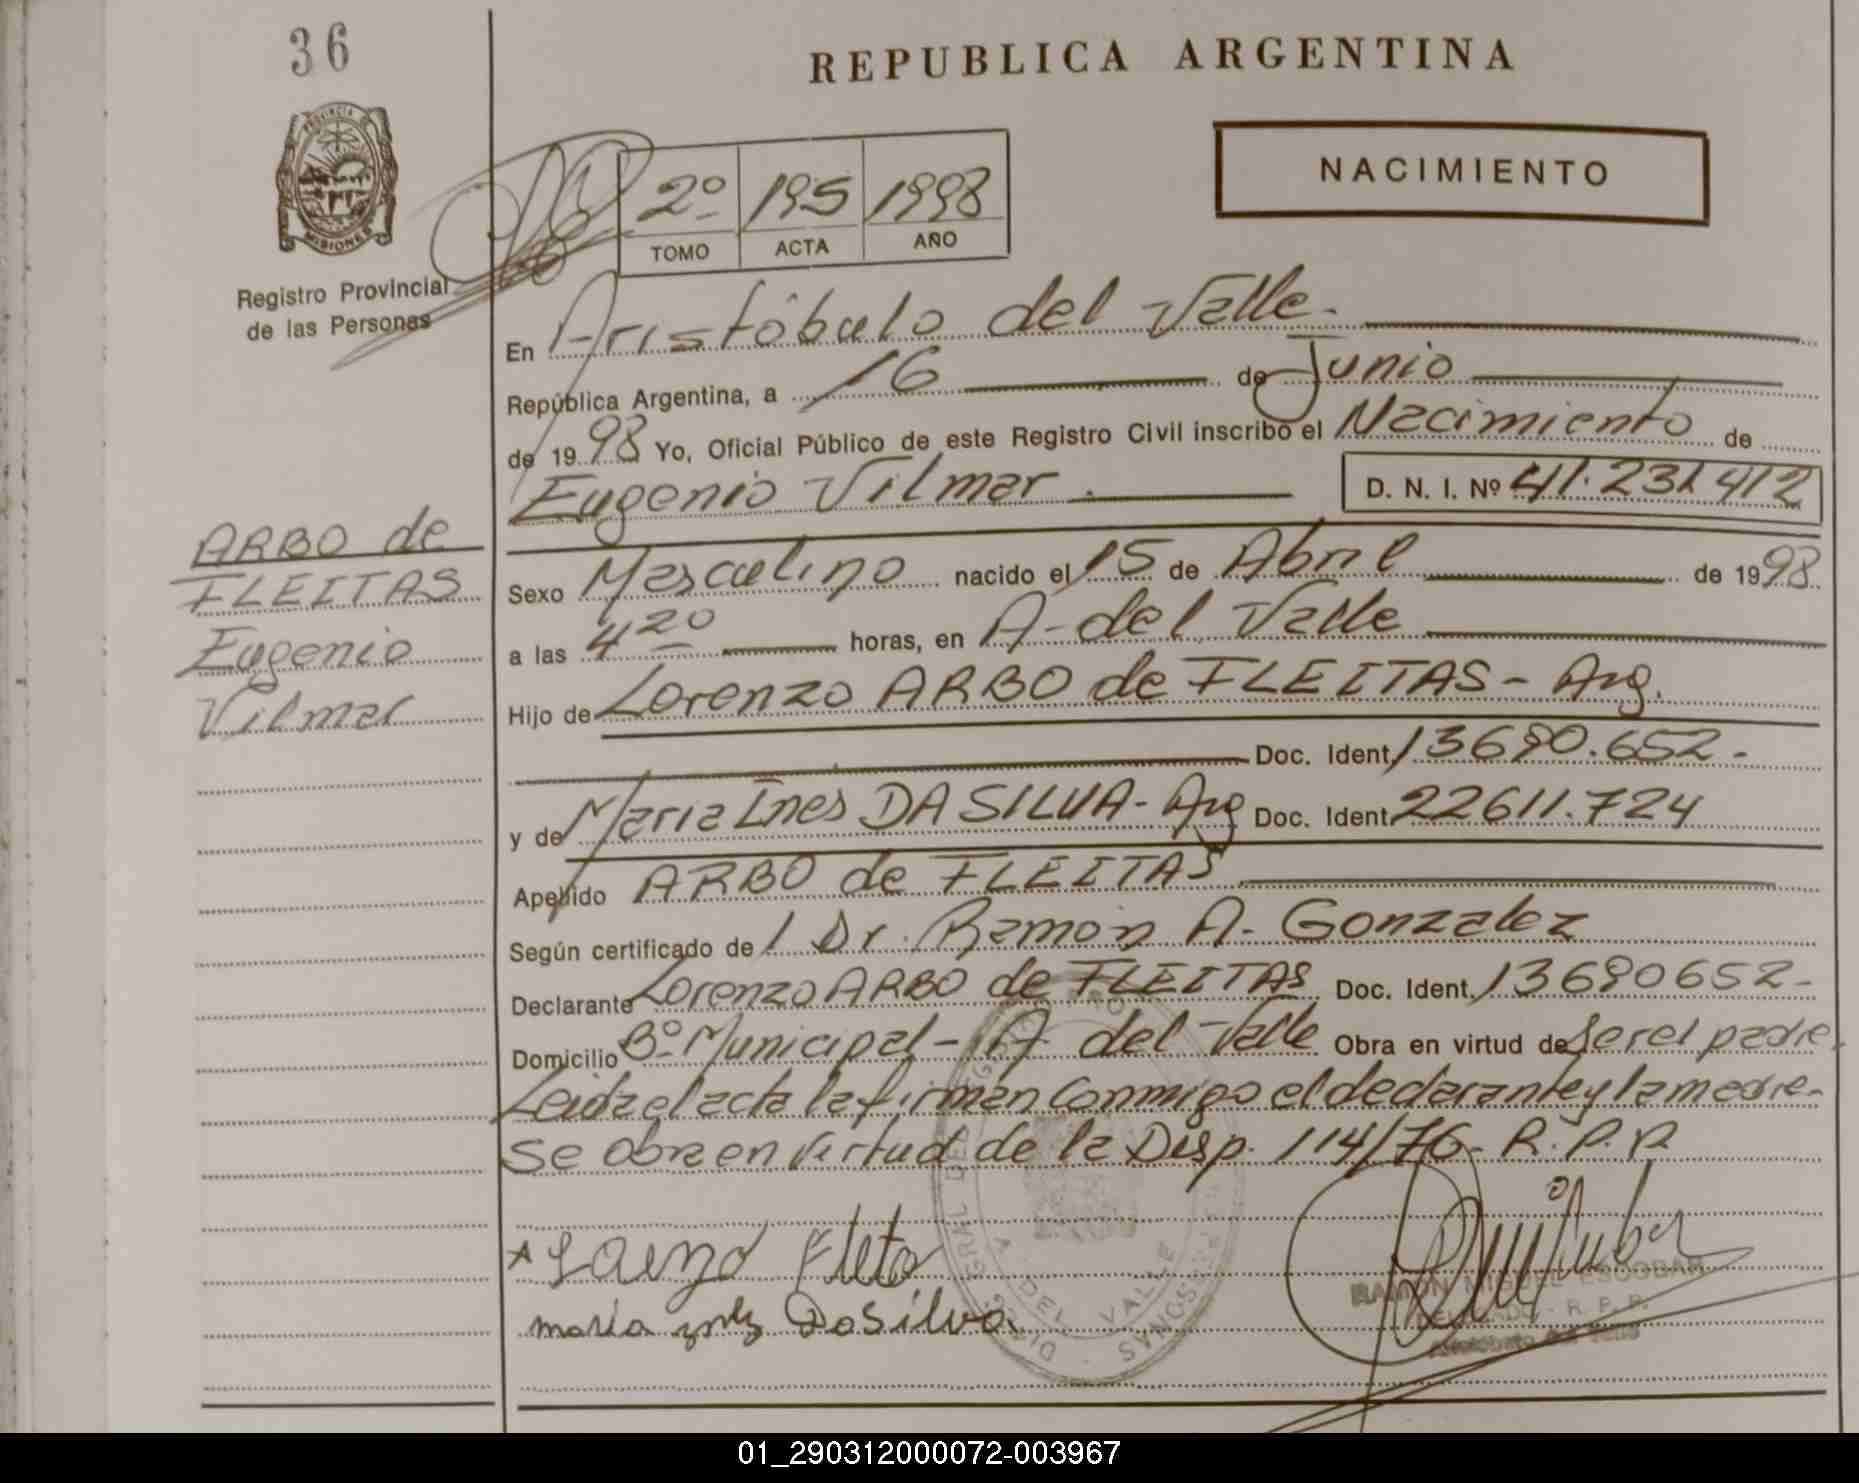 36
REPUBLICA ARGENTINA
PROVINCIA DE
MISIONES
NACIMIENTO
2º 195 1998
TOMO ACTA AÑO
Registro Provincial
de las Personas
En Aristóbulo del Valle.
República Argentina, a 16 de Junio
de 1998 Yo, Oficial Público de este Registro Civil inscribo el Nacimiento de
Eugenio Vilmar. D. N. I. Nº 41.231.412
ARBO de
FLEITAS
Eugenio
Vilmar
Sexo Masculino nacido el 15 de Abril de 1998
a las 4 20 horas, en A. del Valle
Hijo de Lorenzo ARBO de FLEITAS - Arg.
Doc. Ident. 13690.652.
y de Maria Ines DA SILVA - Arg Doc. Ident. 22611.724
Apellido ARBO de FLEITAS
Según certificado de Dr. Ramón A. Gonzalez
Declarante Lorenzo ARBO de FLEITAS Doc. Ident. 13690652-
Domicilio Bº Municipal - A del Valle Obra en virtud de Ser el padre.
Leida el acta la firman conmigo el declarante y la madre-
Se obra en virtud de la Disp. 114/76- R.P.P.
maria Da Silva.
RAMON MIGUEL ESCOBAR
DELEGADO - R. P. P.
Aristóbulo del Valle
A. DEL VALLE
01_290312000072-003967